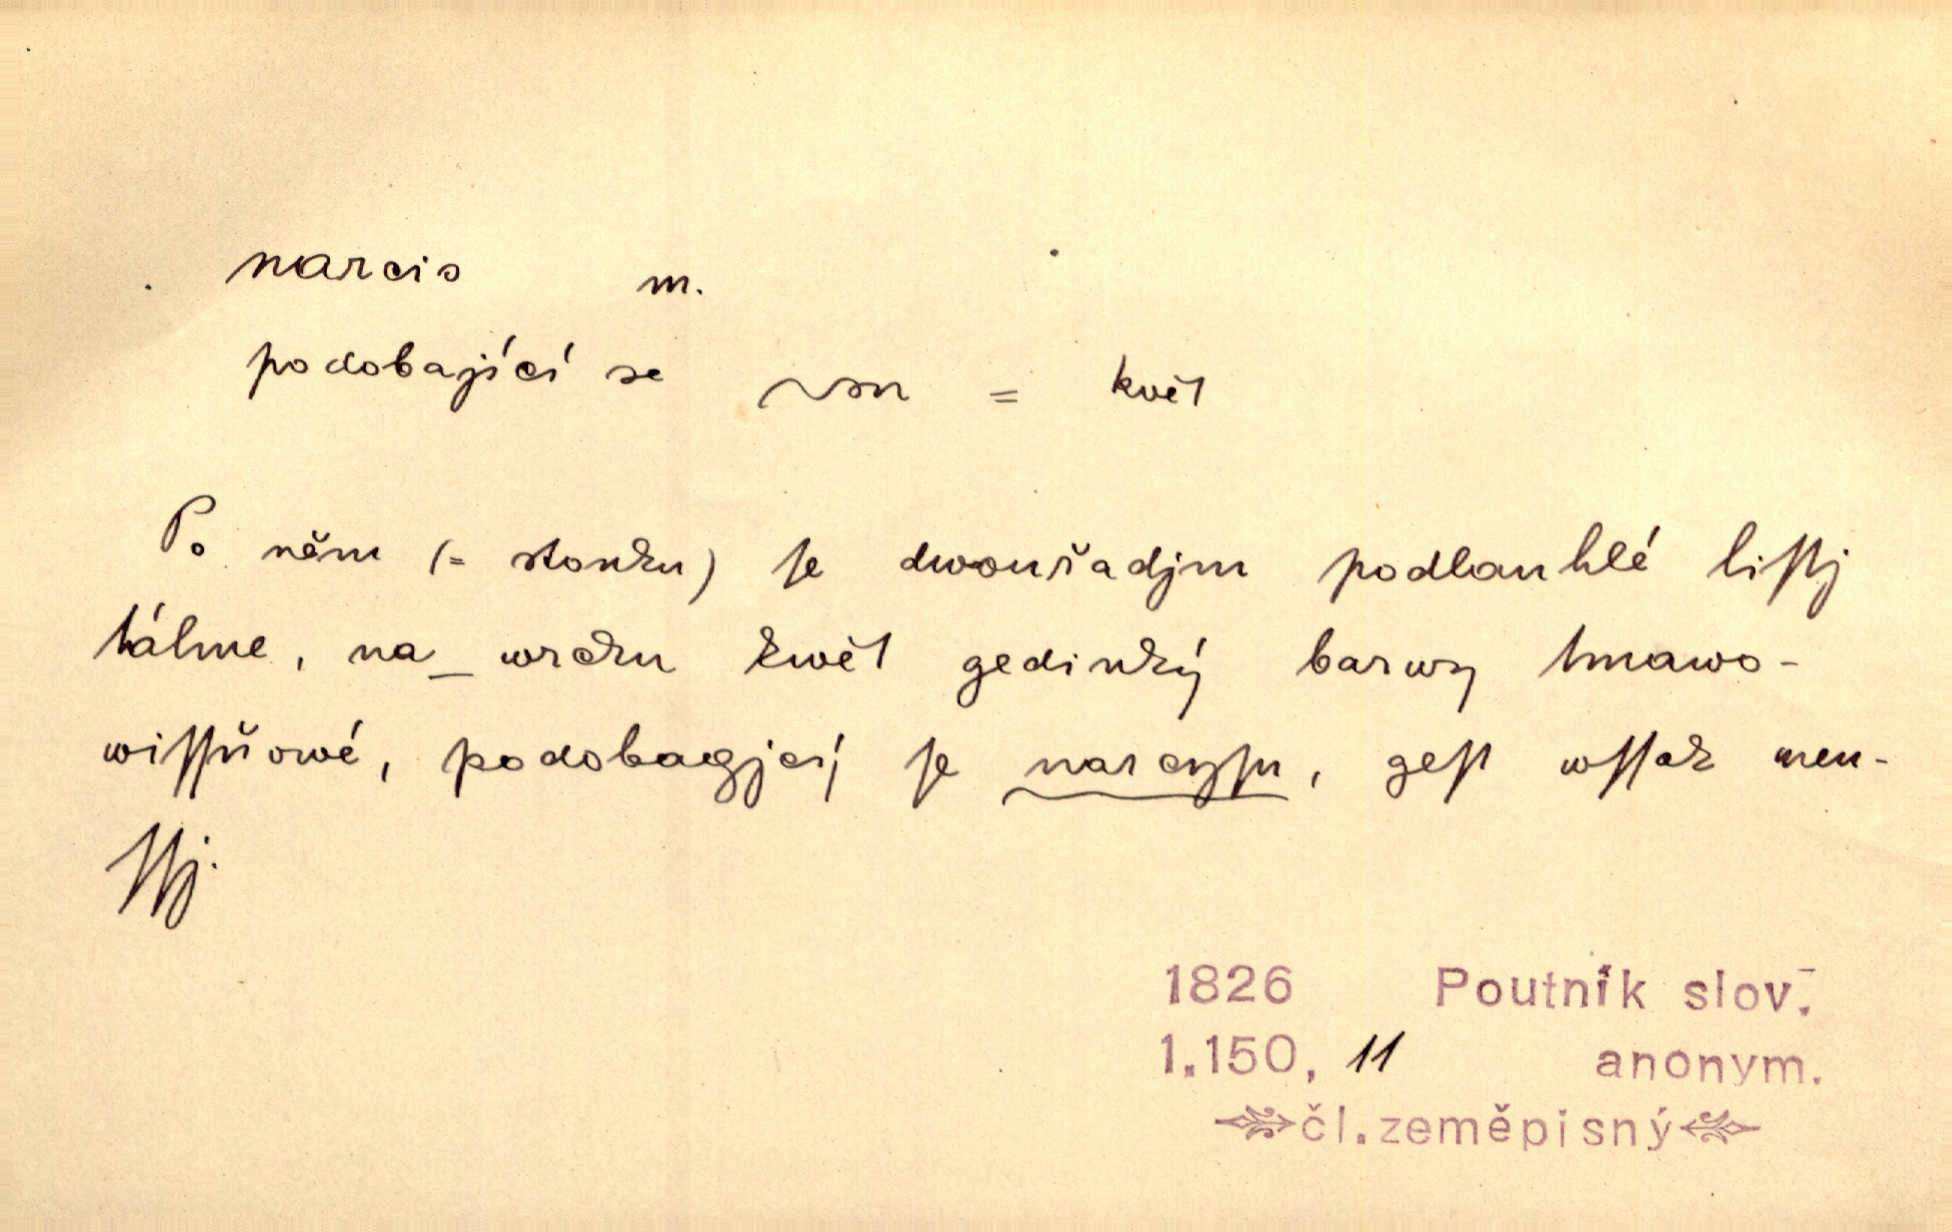 narcis m.
podobající se ~su = květ
Po něm (= stonku) ſe dwouřadjm podlauhlé liſtj
táhne, na wrcku kwět gedinký barwy tmawo-
wiſſňowé, podobagjcý ſe narcyſu, geſt wſſak men-
ſſj.
1826 Poutník slov.
1.150, 11 anonym.
čl.zeměpisný